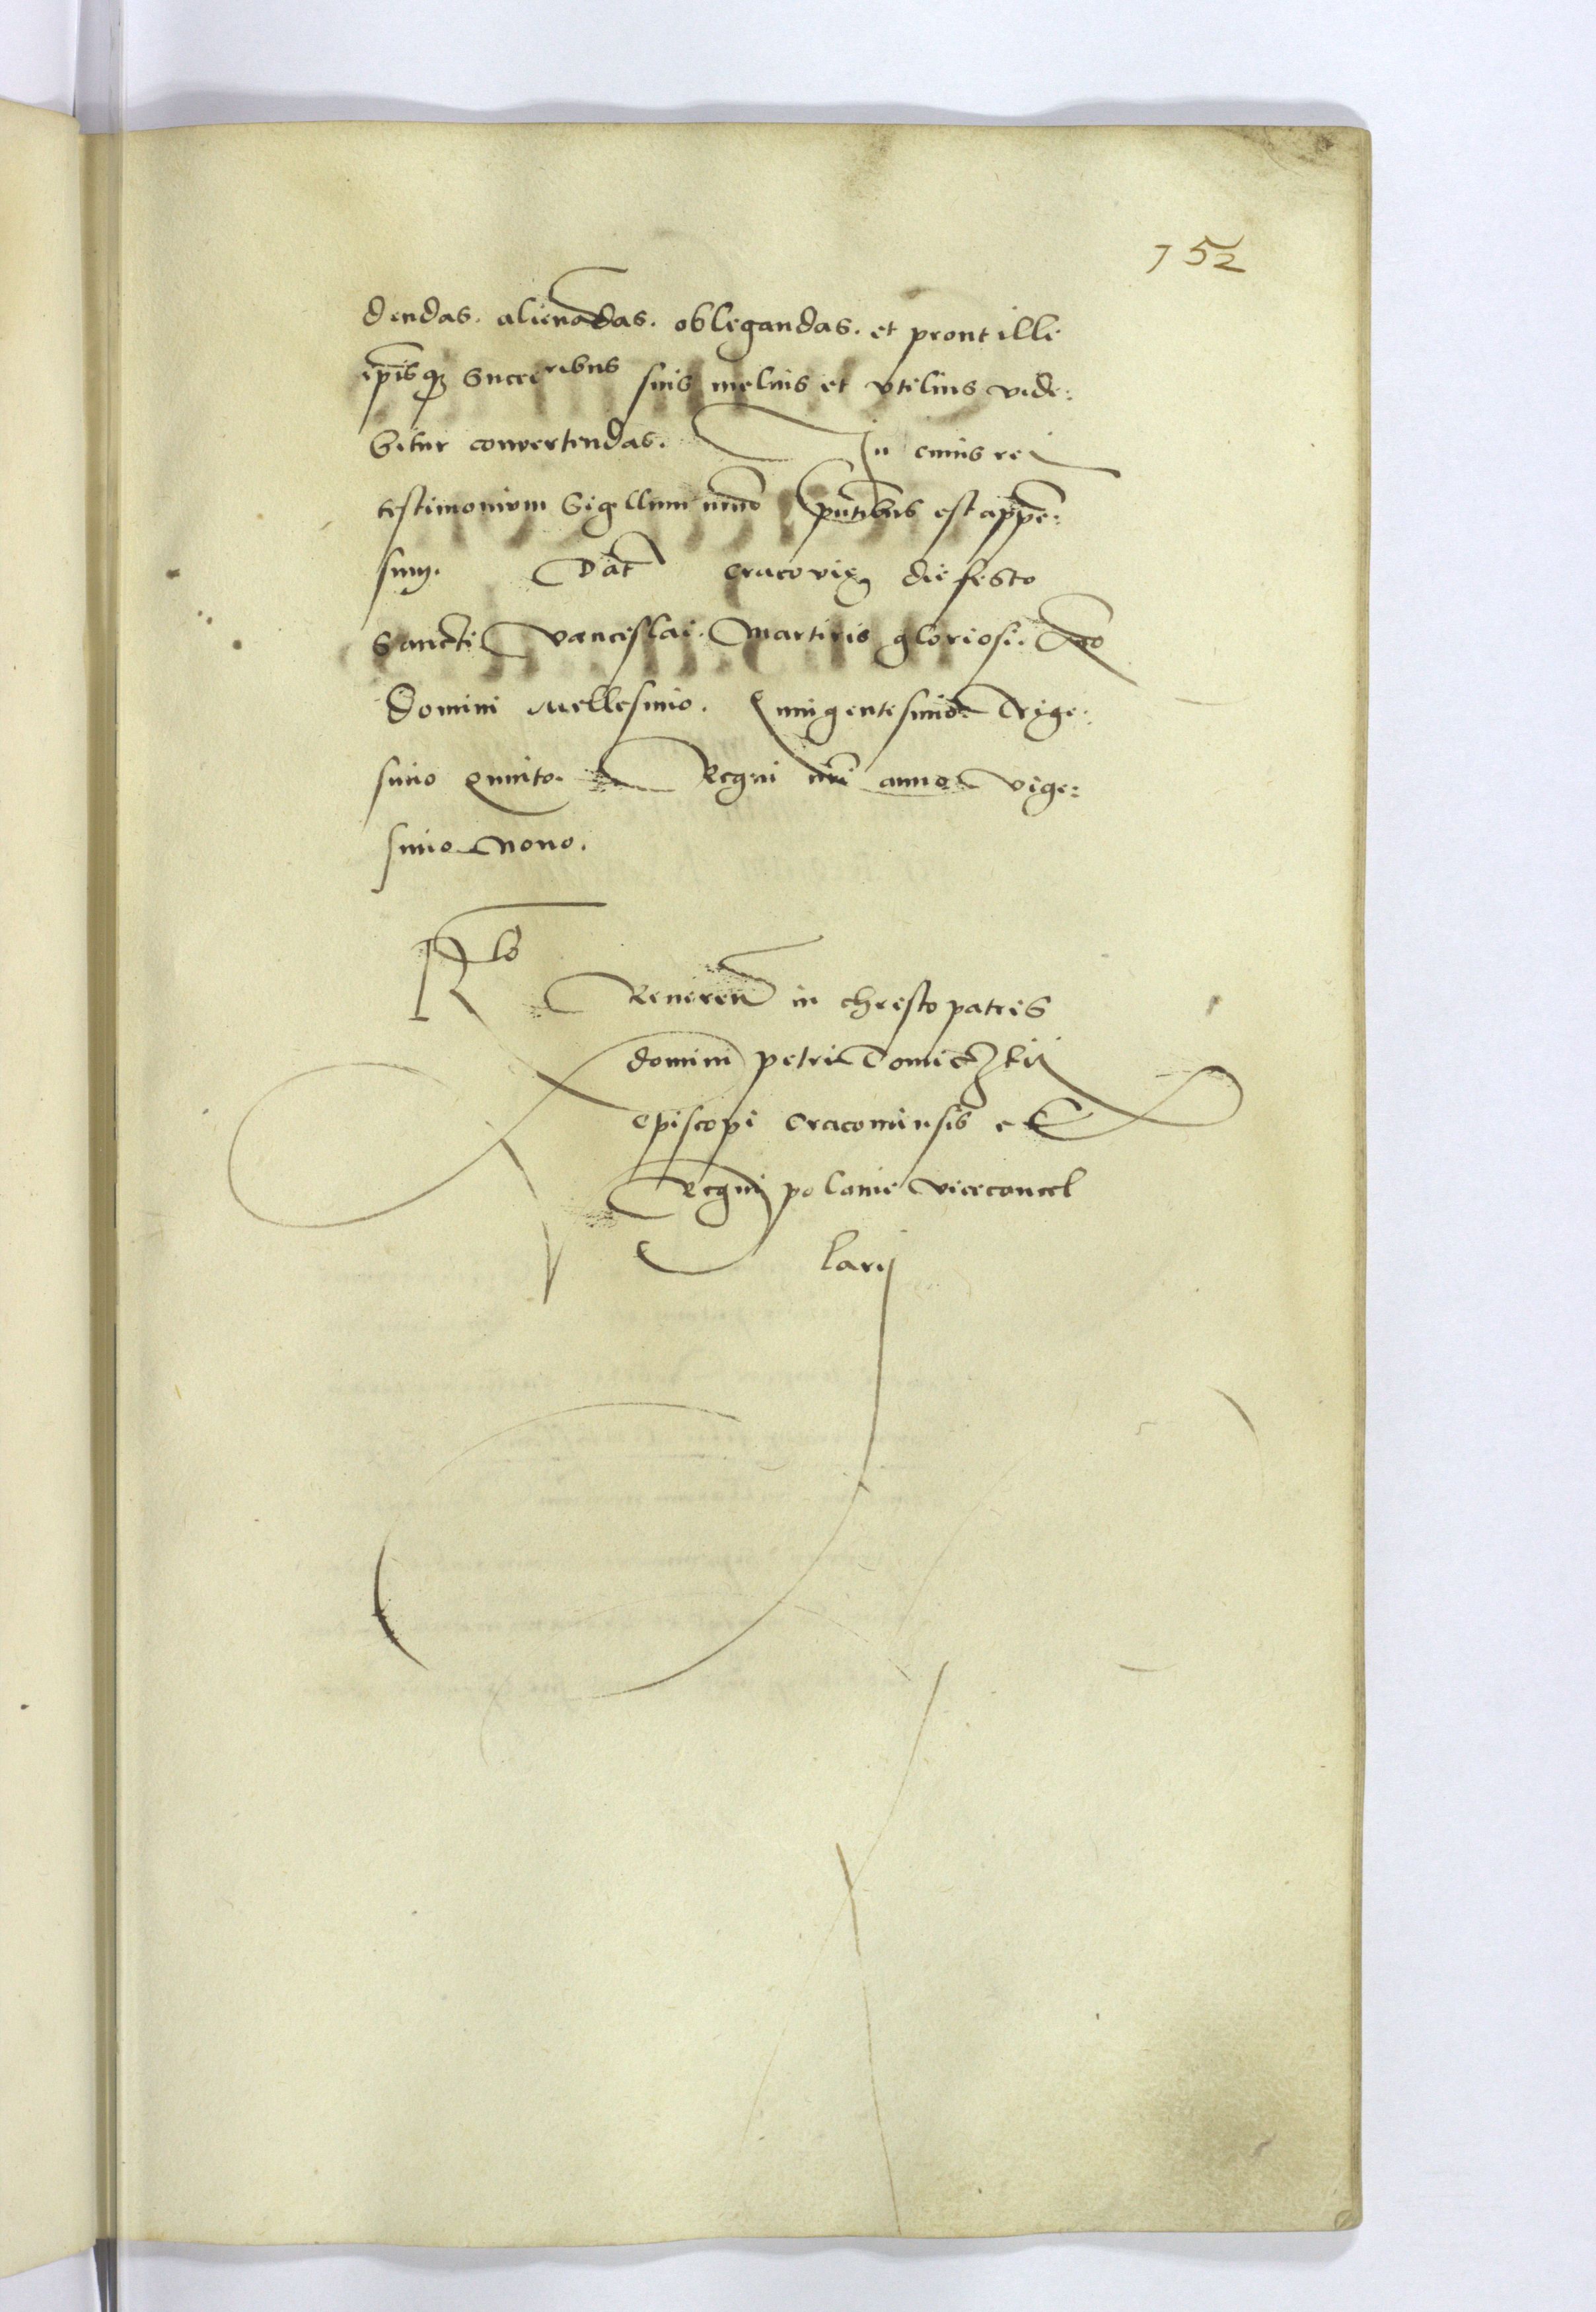 152
dendas. alienādas. obligandas. et prout illi
ip̄isq; Succeribus suis melius et vtilius vide:
bitur convertendas. In cuius rei
testimonium Sigillum nr̄um p̄ntibus est appē:
sum. Dat̄ Cracovię die festo
Sancti Vanceslai. Martiris gloriosi. An̄o
Domini Millesimo. Quingentesimo Trige:
simo Quinto. Regni nr̄i anno vige:
simo Nono.
Rlō
Reveren̄ in christo patris
domini petri Tomiczkij
Episcopi Cracoviensis et
Regni polonie vicecancel
larij